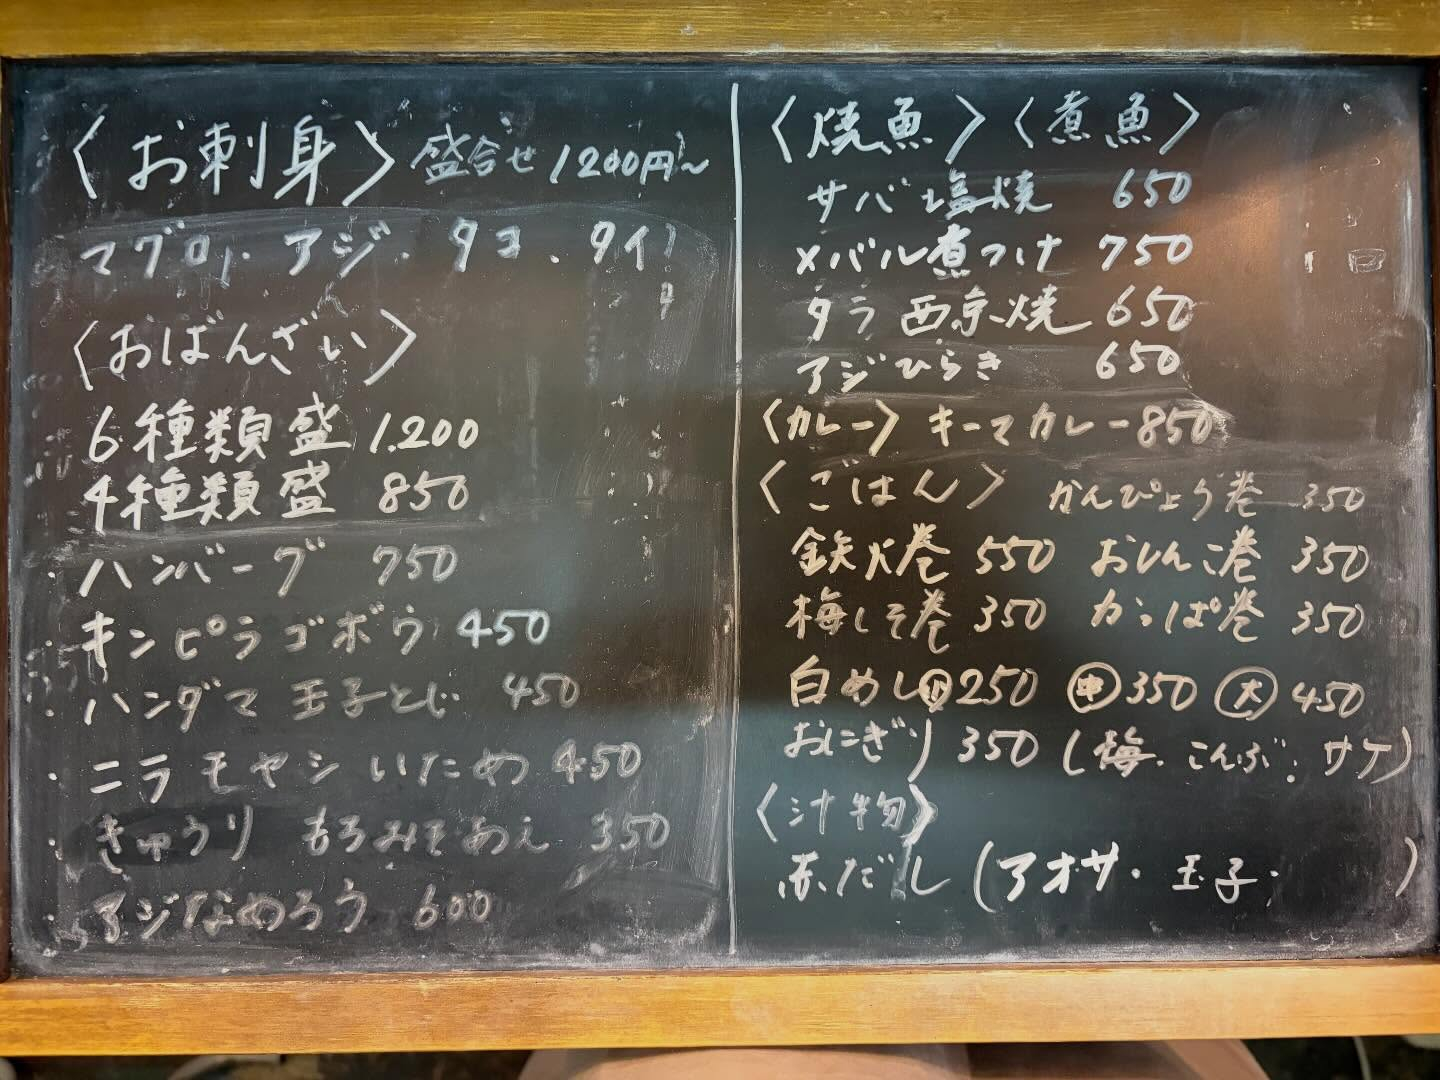 〈お刺身〉盛合せ 1200円〜
マグロ、アジ、タコ、タイ
〈おばんざい〉
6種類盛 1.200
4種類盛 850
・ハンバーグ 750
・キンピラゴボウ 450
・ハンダマ 玉子とじ 450
・ニラモヤシいため 450
・きゅうり もろみそあえ 350
・アジなめろう 600
〈焼魚〉〈煮魚〉
サバ塩焼 650
メバル煮つけ 750
タラ西京焼 650
アジひらき 650
〈カレー〉キーマカレー 850
〈ごはん〉かんぴょう巻 350
鉄火巻 550 おしんこ巻 350
梅しそ巻 350 かっぱ巻 350
白めし㊙小 250 ㊥350 大 450
おにぎり 350 (梅、こんぶ、サケ)
〈汁物〉
赤だし (アオサ・玉子・ )